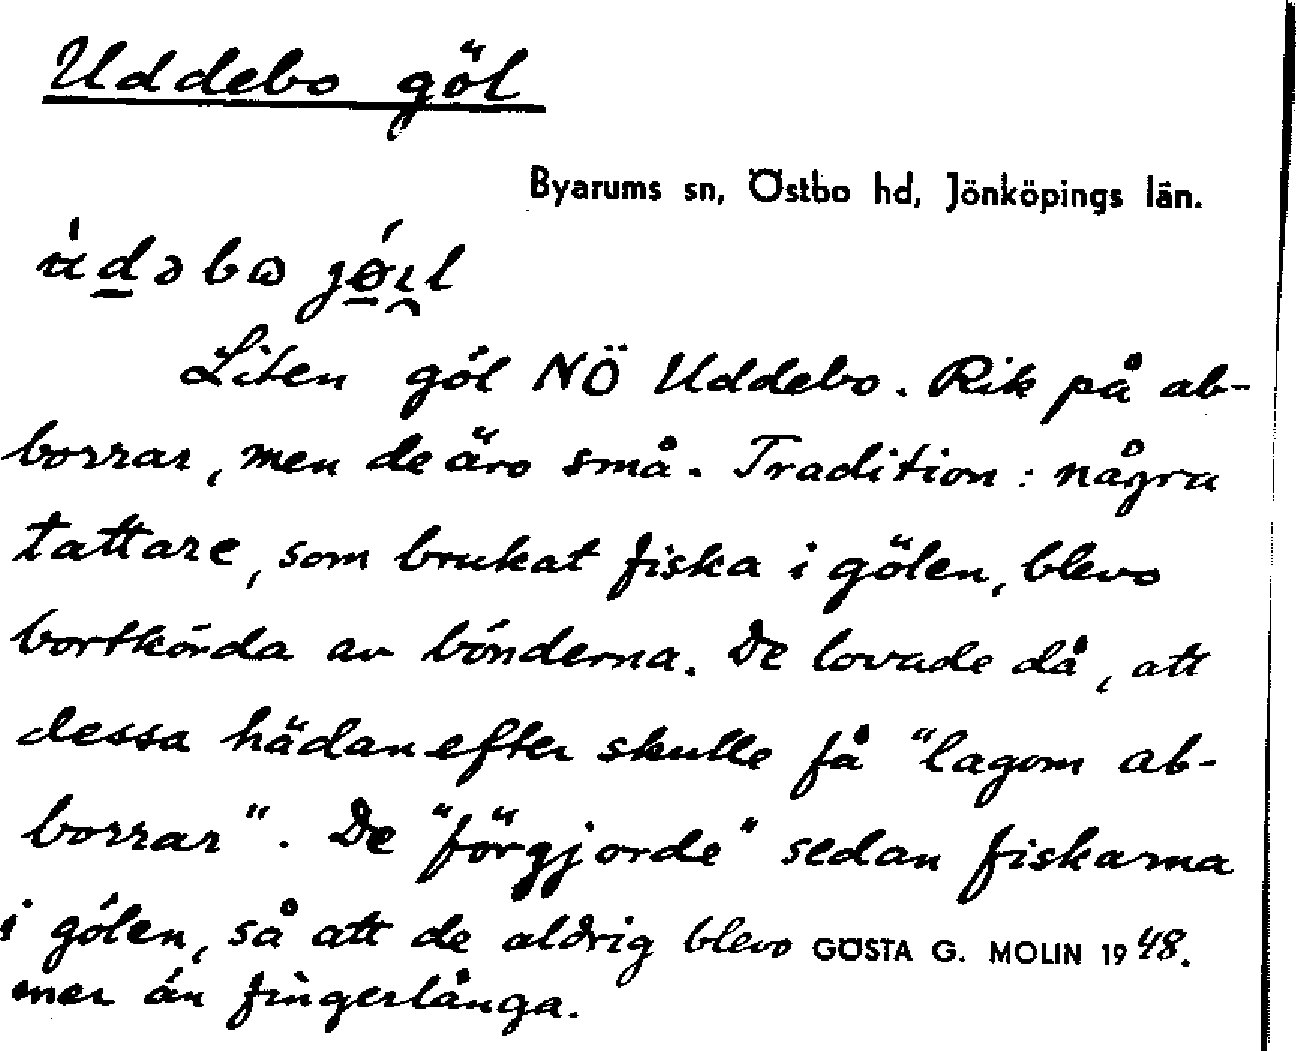 Uddebo göl
Byarums sn, Östbo hd, Jönköpings län.
Liten göl NÖ Uddebo. Rik på ab-
borrar, men de äro små. Tradition: några
tattare, som brukat fiska i gölen, blevo
bortkörda av bönderna. De lovade då, att
dessa hädanefter skulle få "lagom ab-
borrar". De "förgjorde" sedan fiskarna
i gölen, så att de aldrig blevo GÖSTA G. MOLIN 1948.
mer än fingerlånga.